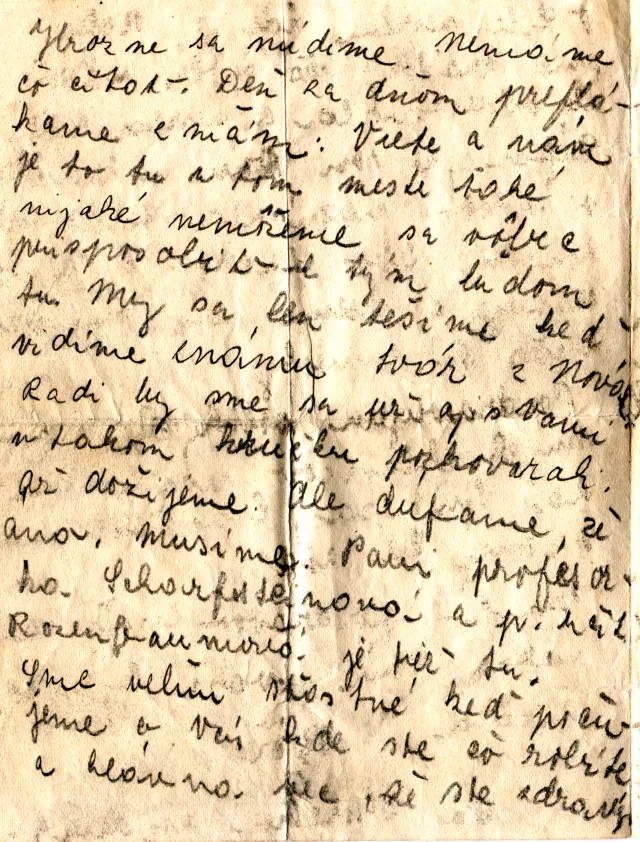 Hrozne sa nudíme. Nemáme
čo čítať. Deň za dňom preflá-
kame s ničím. Viete a nám
je to tu v tom meste také
nijaké nemôžeme sa vôbec
prispôsobiť k tým ľuďom
tu. My sa len tešíme keď
vidíme známu tvár z Nová
Radi by sme sa už aj s vami
v takom krúžku pozhovarali,
až dožijeme. Ale dufame, že
ano, musíme. Pani profesor-
ka Scharfsteinová a p. učit.
Rozenbaumová je tiež tu.
Sme veľmi štastné keď poču-
jeme o Vás kde ste čo robíte
a hlavna vec, že ste zdravý